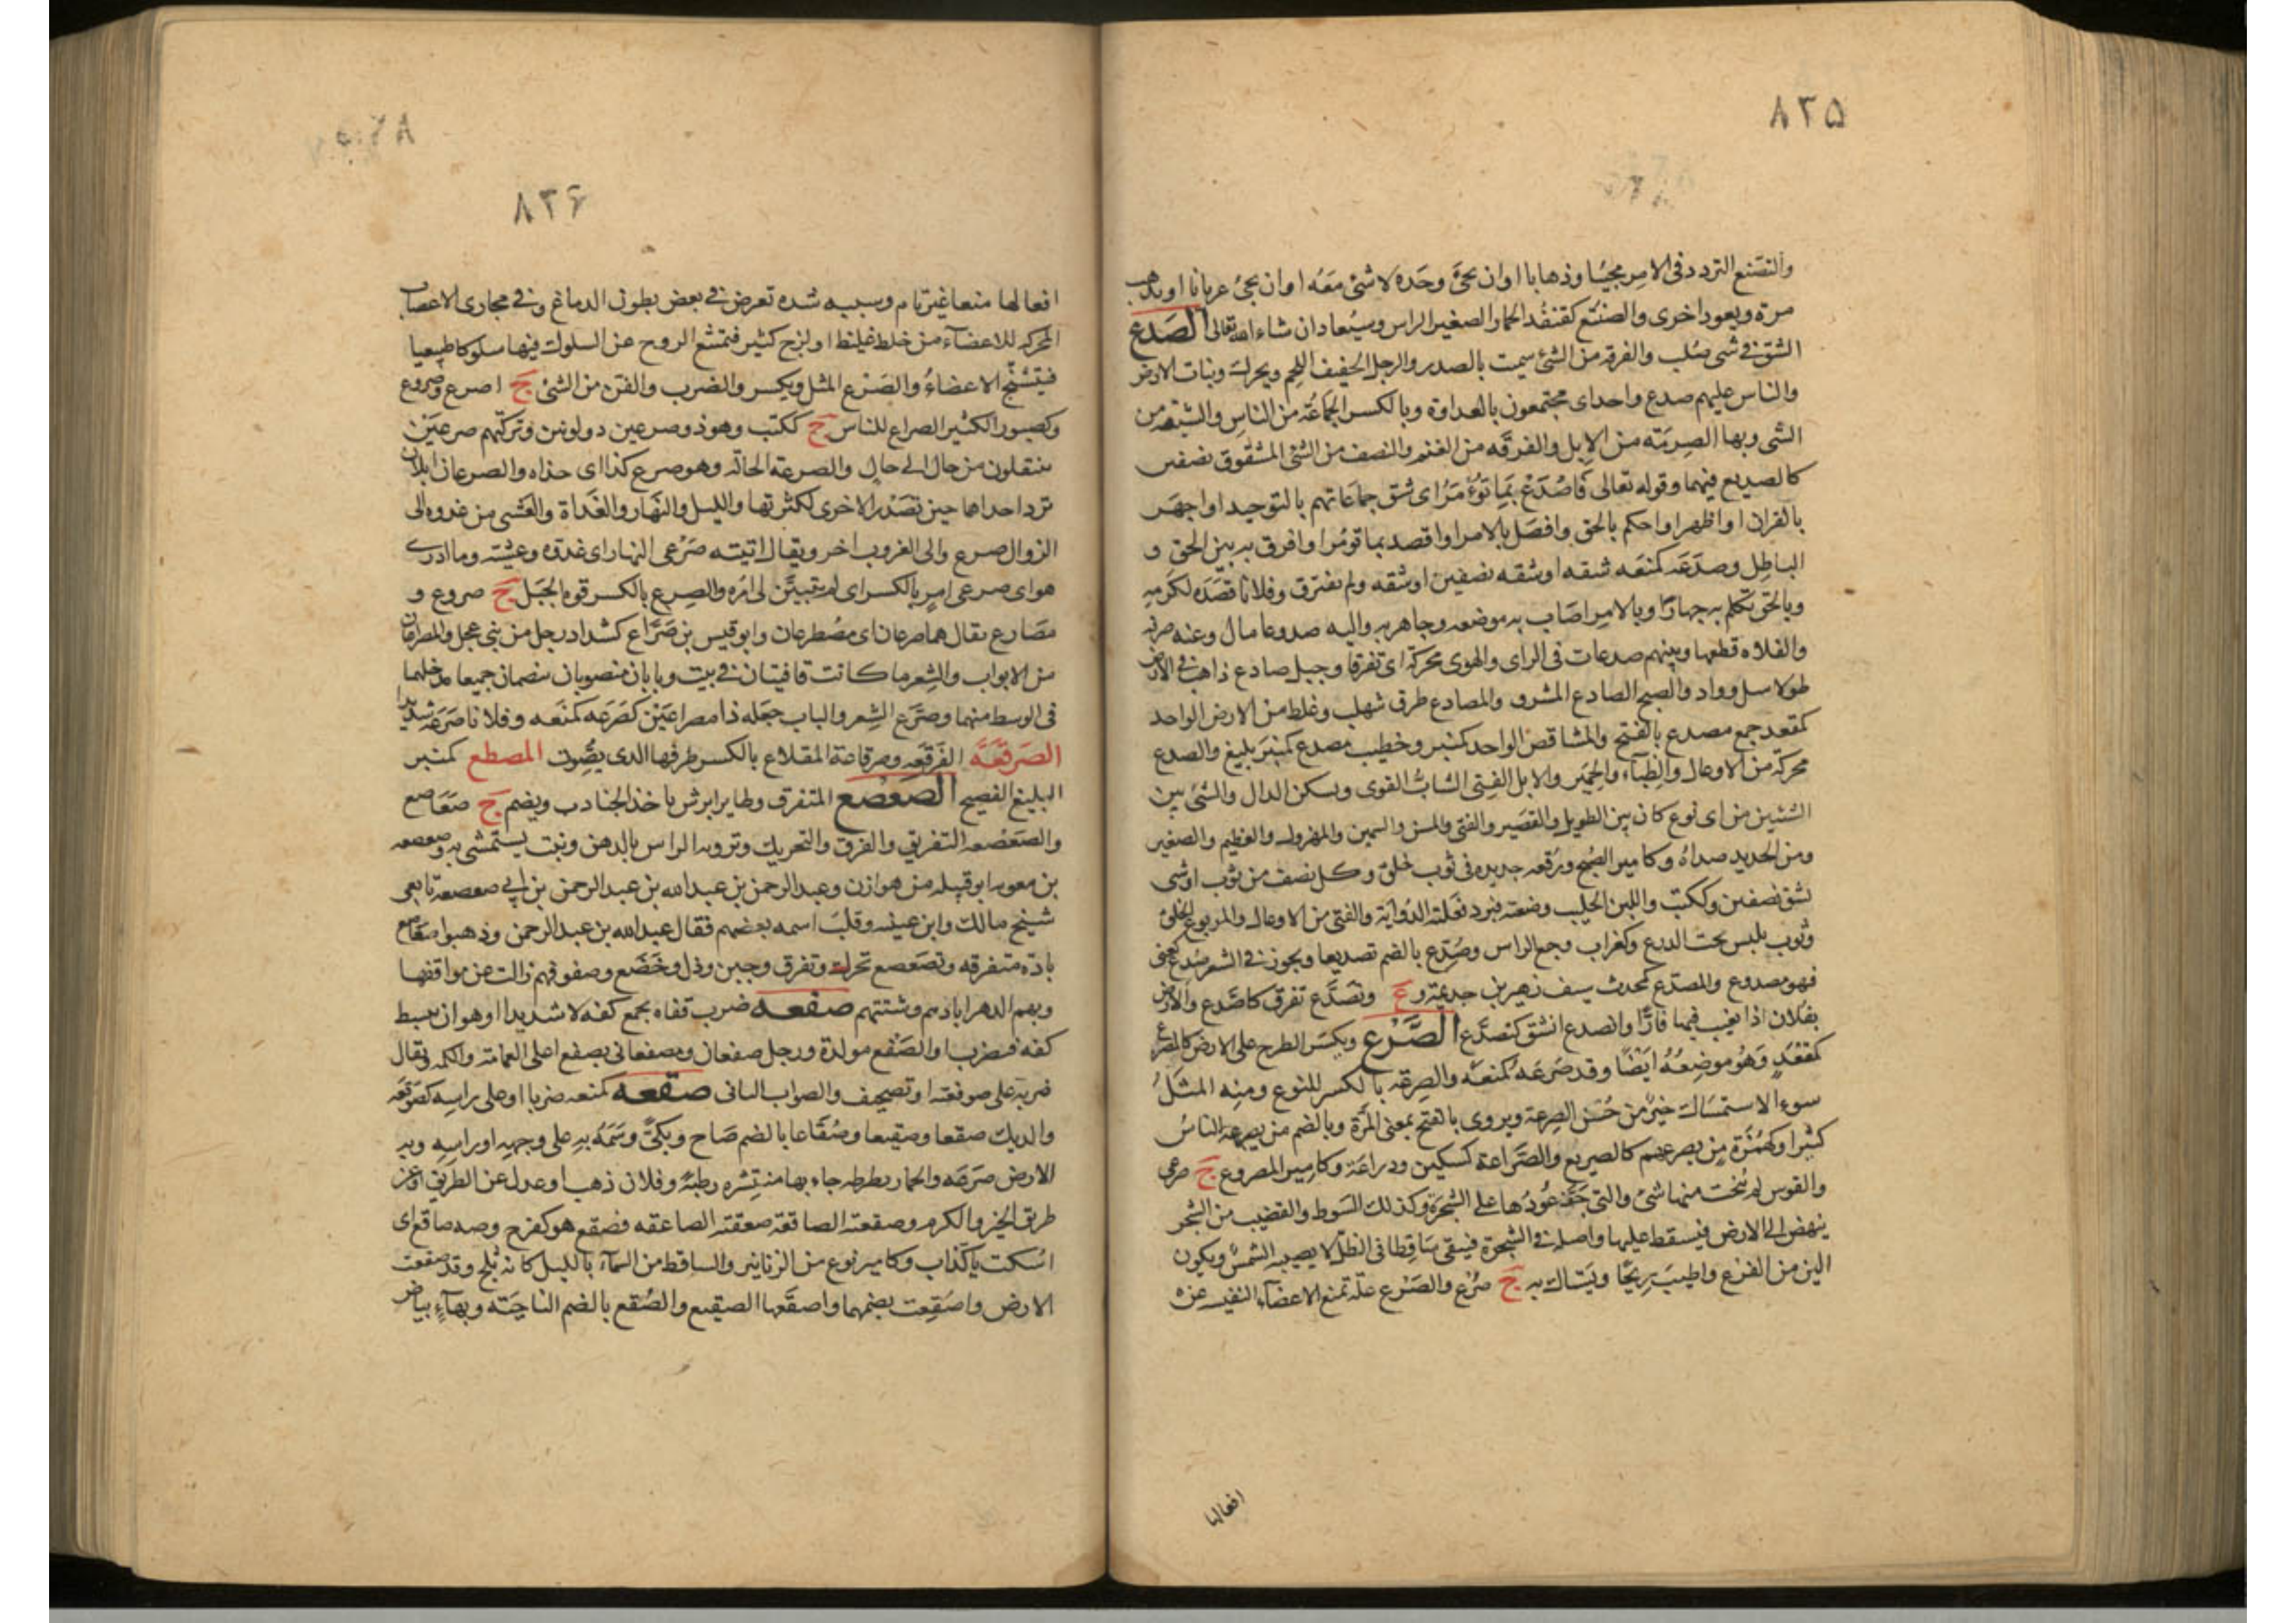 ٨٣٥
والتصنع التردد فى الامر مجيئا وذهابا او ان يجئ وحده لا شئ معه او ان يجئ عريانا او يذهب
مرة ويعود اخرى والصنتع كقنفذ الحمار الصغير الراس وسيعاد ان شاء الله تعالى الصدع
الشق فى شى صلب والفرقة من الشئ سميت بالصدر والرجل الخفيف اللحم ويحرك ونبات الارض
والناس عليهم صدع واحد اى مجتمعون بالعداوة وبالكسر الجماعة من الناس والشقة من
الشى وبها الصرمة من الابل والفرقه من الغنم والنصف من الشئ المشقوق نصفين
كالصديع فيهما وقوله تعالى فاصدع بما تؤمر اى شق جماعاتهم بالتوحيد او اجهر
بالقران او اظهر او احكم بالحق وافصل بالامر او اقصد بما تؤمر او افرق به بين الحق و
الباطل وصدعه كمنعه شقه او شقه نصفين او شقه ولم يفترق وفلانا قصده لكرمه
وبالحق تكلم به جهارا وبالامر اصاب به موضعه وجاهر به واليه صدوعا مال وعنه صرفه
والفلاه قطعها وبينهم صدعات فى الراى والهوى محركة اى تفرقا وجبل صادع ذاهب فى الارض
طولا سل وواد والصبح الصادع المشرق والمصادع طرق سهلة وغلظ من الارض الواحد
كمقعد جمع مصدع بالفتح والمشاقص الواحد كمنبر وخطيب مصدع كمنبر بليغ والصدع
محركة من الاوعال والظباء والحمير والابل الفتى الشاب القوى ويسكن الدال والشئ بين
الشئين من اى نوع كان بين الطويل والقصير والفتى والمسن والسمين والمهزول والعظيم والصغير
ومن الحديد صداه وكامير الصبح ورقعه جديده فى ثوب خلق وكل نصف من ثوب او شى
يشق نصفين وككتب واللبن الحليب وضعته فبرد فعلته الدواية والفتى من الاوعال والمربوع الخلق
وثوب يلبس تحت الدرع وكغراب وجع الراس وصدع بالضم تصديعا ويجوز فى الشعر صدع كعنى
فهو مصدوع والمصدع كمحدث سيف زهير بن جديمة و ع وتصدع تفرق كاصدع والارض
بفلان اذا تغيب فيها فارا وانصدع انشق كتصدع الصرع ويكسر الطرح على الارض كالمصرع
كمقعد وهو موضعه ايضا وقد صرعه كمنعه والصرعة بالكسر للنوع ومنه المثل
سوء الاستمساك خير من حسن الصرعة ويروى بالفتح بمعنى المرة وبالضم من يصرعه الناس
كثيرا وكهمزة من يصرعهم كالصريع والصراعة كسكين ودراعة وكامير المصروع ج صرعى
والقوس لم ينحت منها شئ والتى جف عودها على الشجرة وكذلك السوط والقضيب من الشجر
ينهض الى الارض فيسقط عليها واصله فى الشجرة فيبقى ساقطا فى الظل لا يصيبه الشمس ويكون
الين من الفرع واطيب ريحا ويستاك به ج صرع والصرع علة تمنع الاعضاء النفيسة عن
افعالها
٨٣۶
افعالها منعا غير تام وسببه شده تعرض فى بعض بطون الدماغ وفى مجارى الاعصاب
المحركه للاعضاء من خلط غليظ او لزج كثير فتمتنع الروح عن السلوك فيها سلوكا طبيعيا
فيتشنج الاعضاء والصرع المثل ويكسر والضرب والفن من الشئ ج اصرع وصروع
وكصبور الكثير الصراع للناس ج ككتب وهو ذو صرعين ذو لونين وتركتهم صرعين
ينتقلون من حال الى حال والصرعة الحالة وهو صرع كذا اى حذاه والصرعان ابلان
ترد احداها حين تصدر الاخرى لكثرتها والليل والنهار والغداة والعشى من غدوه الى
الزوال صرع والى الغروب اخر ويقال اتيته صرعى النهار اى غدوه وعشيته وما ادرى
هو اى صرعى امر بالكسر اى لم يتبين لى امره والصرع بالكسر قوة الحبل ج صروع و
مصارع يقال هما صرعان اى مصطرعان وابو قيس بن صراع كشداد رجل من بنى عجل والمصراعان
من الابواب والشعر ما كانت قافيتان فى بيت وبابان منصوبان ينضمان جميعا مدخلهما
فى الوسط منهما وصرع الشعر والباب جعله ذا مصراعين كصرعه كمنعه وفلانا صرعه شديدا
الصرقعة الفرقعه وصرقاعة المقلاع بالكسر طرفها الذى يصوت المصطع كمنبر
البليغ الفصيح الصعصع المتفرق وطاير ابرش ياخذ الجنادب ويضم ج صعاصع
والصعصعه التفريق والفرق والتحريك وترويه الراس بالدهن ونبت يستمشى به وصعصعه
بن معويه ابو قبيله من هوازن وعبد الرحمن بن عبدالله بن عبد الرحمن بن ابى صعصعة تابعى
شيخ مالك وابن عيينه وقلب اسمه بعضهم فقال عبدالله بن عبد الرحمن وذهبوا صعاصع
بادّه متفرقه وتصعصع تحرك وتفرق وجبن وذل وخضع وصفوفهم زالت عن مواقفها
وبهم الدهر ابادهم وشتتهم صفعه ضرب قفاه بجمع كفه لا شديدا او هو ان يبسط
كفه فيضرب او الصفع مولدة ورجل صفعان ومصفعانى يصفع اعلى العمامة والكمه ويقال
ضربه على صوفعته او تصحيف والصواب الثانى صقعه كمنعه ضربا او على راسه كصوقعه
والديك صقعا وصقيعا وصقاعا بالضم صاح وبكىّ وسمه به على وجهه او راسه وبه
الارض صرعه والحمار بضرطه جاء بها منتشره رطبة وفلان ذهب او عدل عن الطريق او عن
طريق الخير والكرم وصقعته الصاقعة صعقته الصاعقه فصقع هو كفرح وصه صاقع اى
اسكت يا كذاب وكامير نوع من الزنابير والساقط من السماء بالليل كانه ثلج وقد صقعت
الارض واصقعت بضمهما واصقعها الصقيع والصقع بالضم الناحية وبهاء بياض